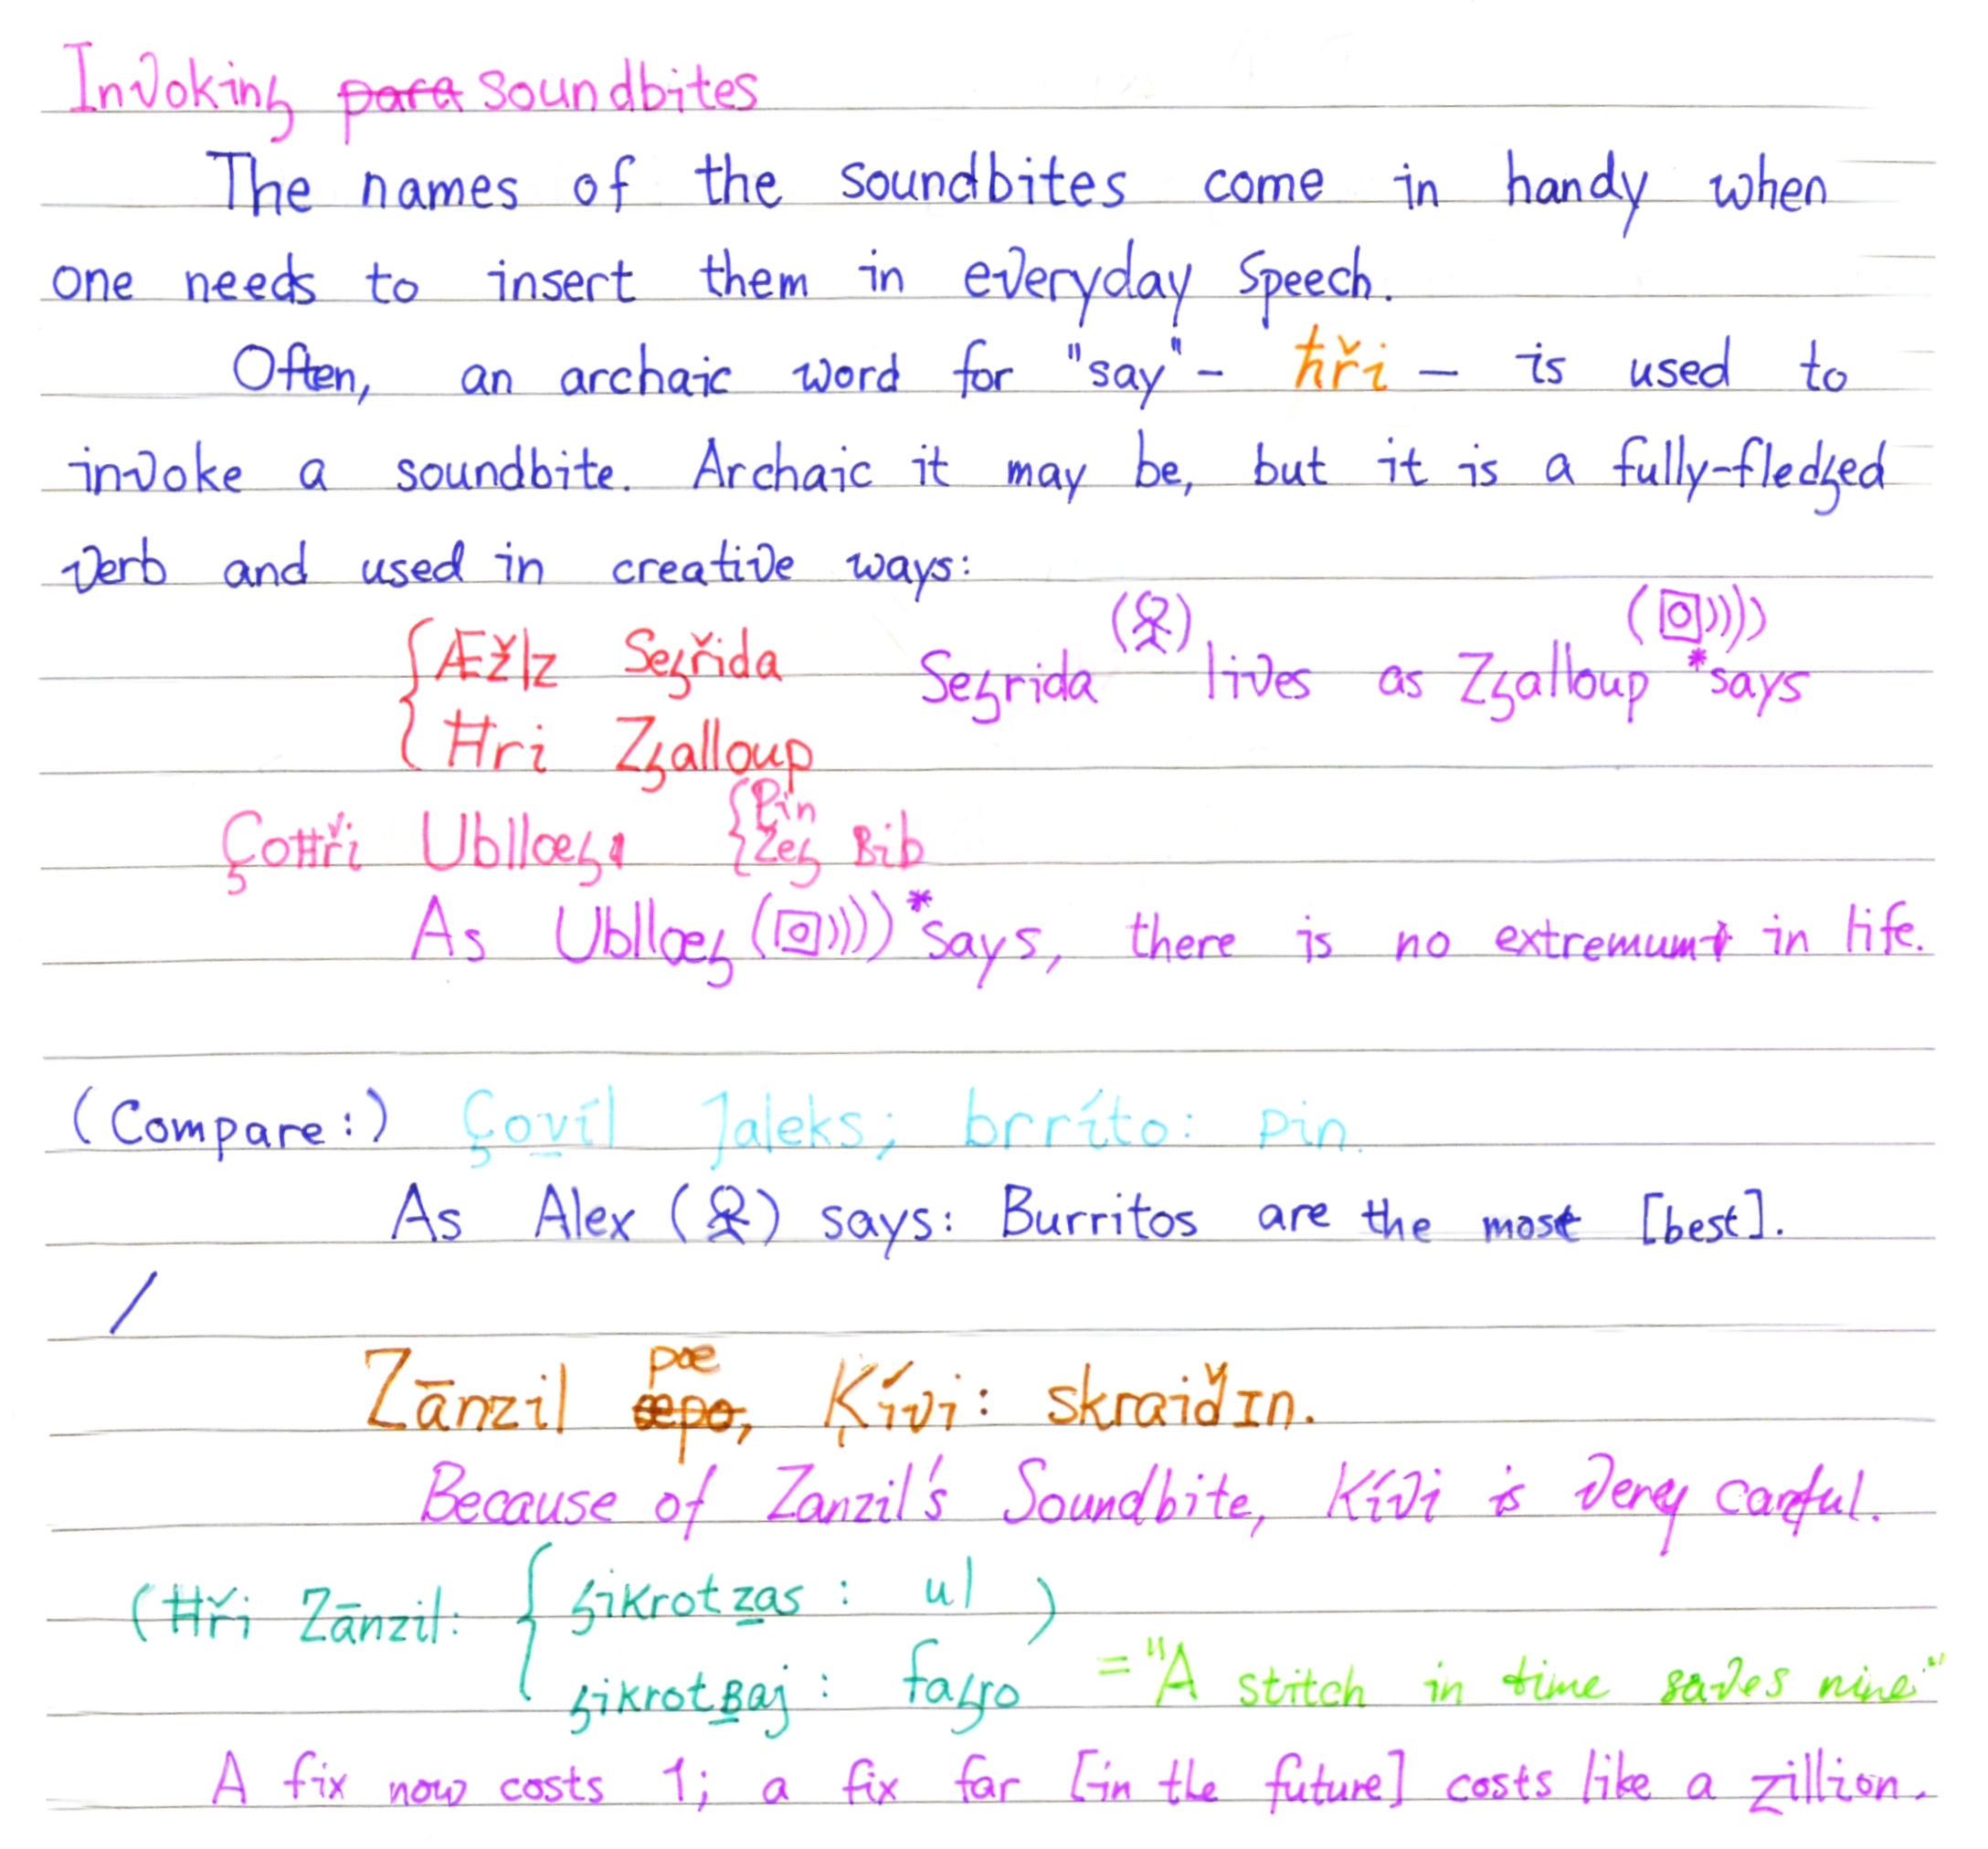 Invoking para soundbites
The names of the soundbites come in handy when
one needs to insert them in everyday speech.
Often, an archaic word for "say" - ħři - is used to
invoke a soundbite. Archaic it may be, but it is a fully-fledged
verb and used in creative ways:
{Æž|z Segřida Segrida ( ) lives as Zgalloup ( ) *says
Ħri Zgalloup
Çoħři Ublloeg {Pin
Žeg Bib
As Ublloeg ( ) *says, there is no extremum in life.
(Compare:) Çovíl Jaleks; brríto: pin.
As Alex ( ) says: Burritos are the most [best].
/
Zānzil poe Ķívi: skraiďın.
Because of Zanzil's Soundbite, Kívi is very careful.
(Ħři Zānzil: { gikrotzas : ul )
gikrotBaj : fago = "A stitch in time saves nine"
A fix now costs 1; a fix far [in the future] costs like a zillion.